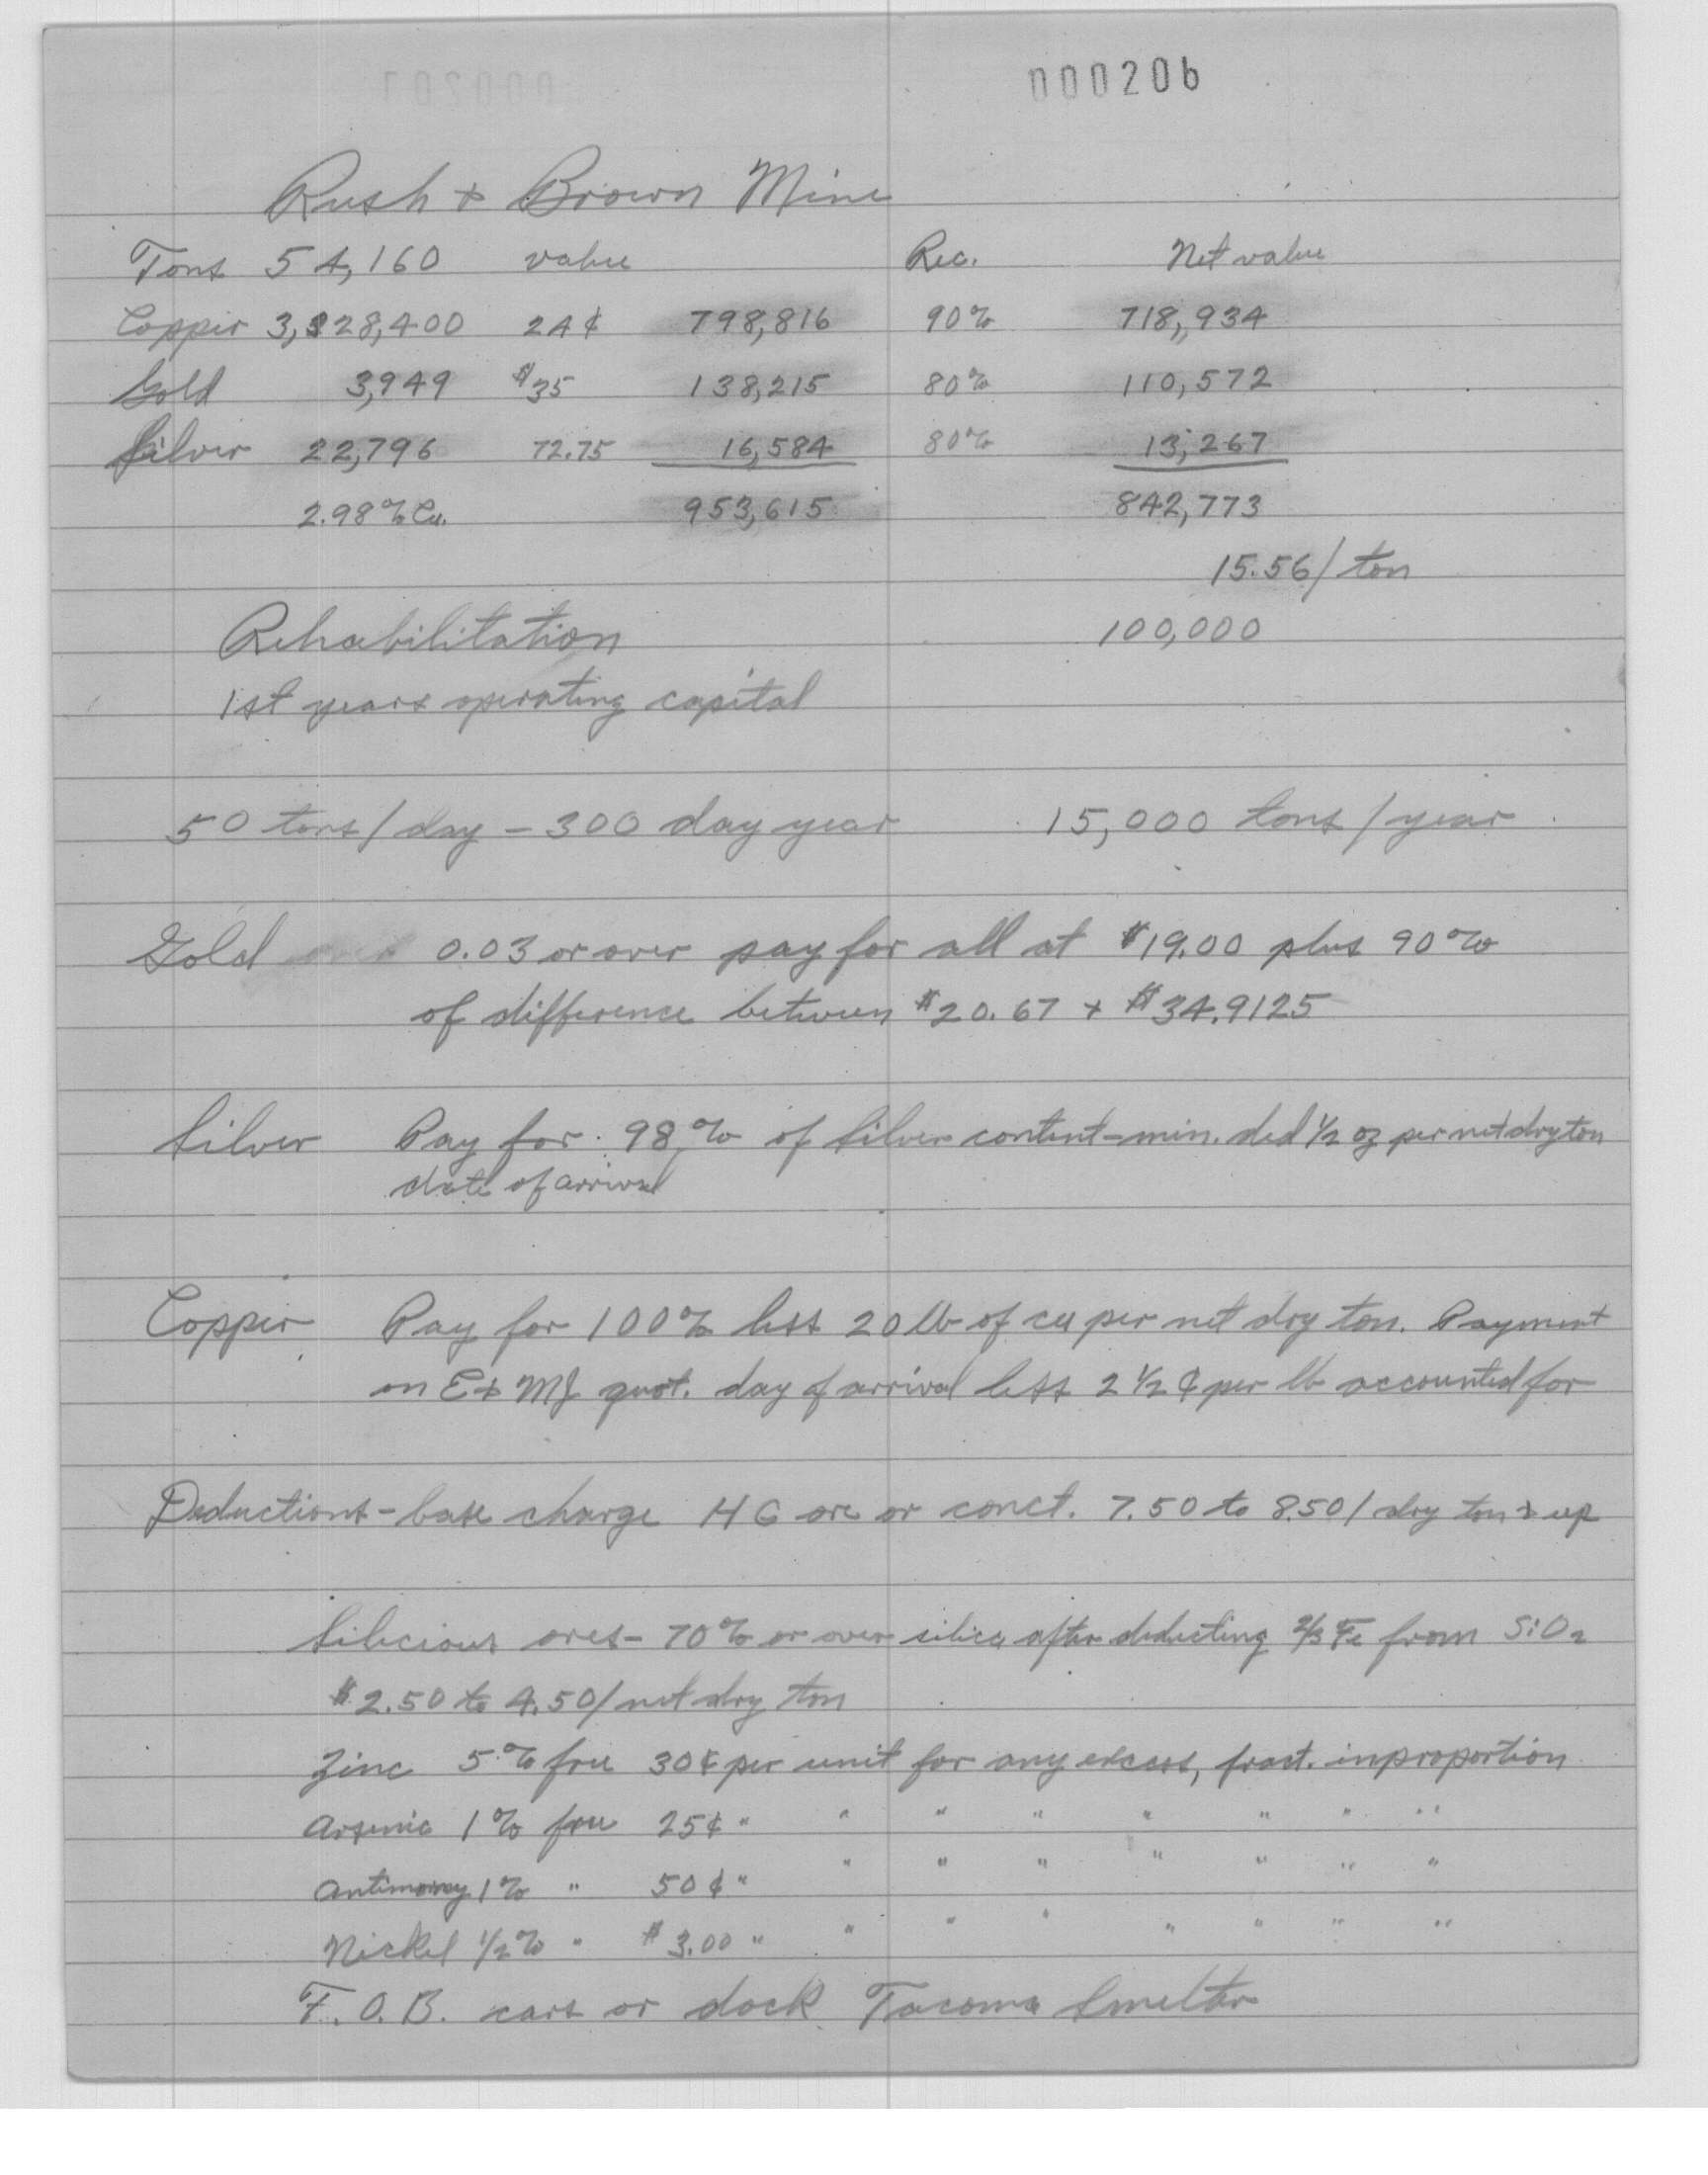 000206
Rush + Brown Mine
Tons 54,160 value Rec. Net value
Copper 3,328,400 24¢ 798,816 90% 718,934
Gold 3,949 $35 138,215 80% 110,572
Silver 22,796 72.75 16,584 80% 13,267
2.98% Cu. 953,615 842,773
15.56/ton
Rehabilitation 100,000
1st years operating capital
50 tons/day - 300 day year 15,000 tons/year
Gold 0.03 or over pay for all at $19.00 plus 90%
of difference between $20.67 + $34.9125
Silver Pay for 98% of silver content - min. ded 1/2 oz per net dry ton
date of arrival
Copper Pay for 100% less 20 lb of cu per net dry ton. Payment
on E + MJ quot. day of arrival less 2 1/2 ¢ per lb accounted for
Deductions - base charge HG ore or conct. 7.50 to 8.50/dry ton + up
Silicious ores - 70% or over silica after deducting 2/3 Fe from SiO2
$2.50 to 4.50/net dry ton
Zinc 5% free 30¢ per unit for any excess, fract. in proportion
Arsenic 1% free 25¢ " " " " " " " "
Antimony 1% " 50¢ " " " " " " " "
Nickel 1/2% " $3.00 " " " " " " " "
F.O.B. cars or dock Tacoma Smelter